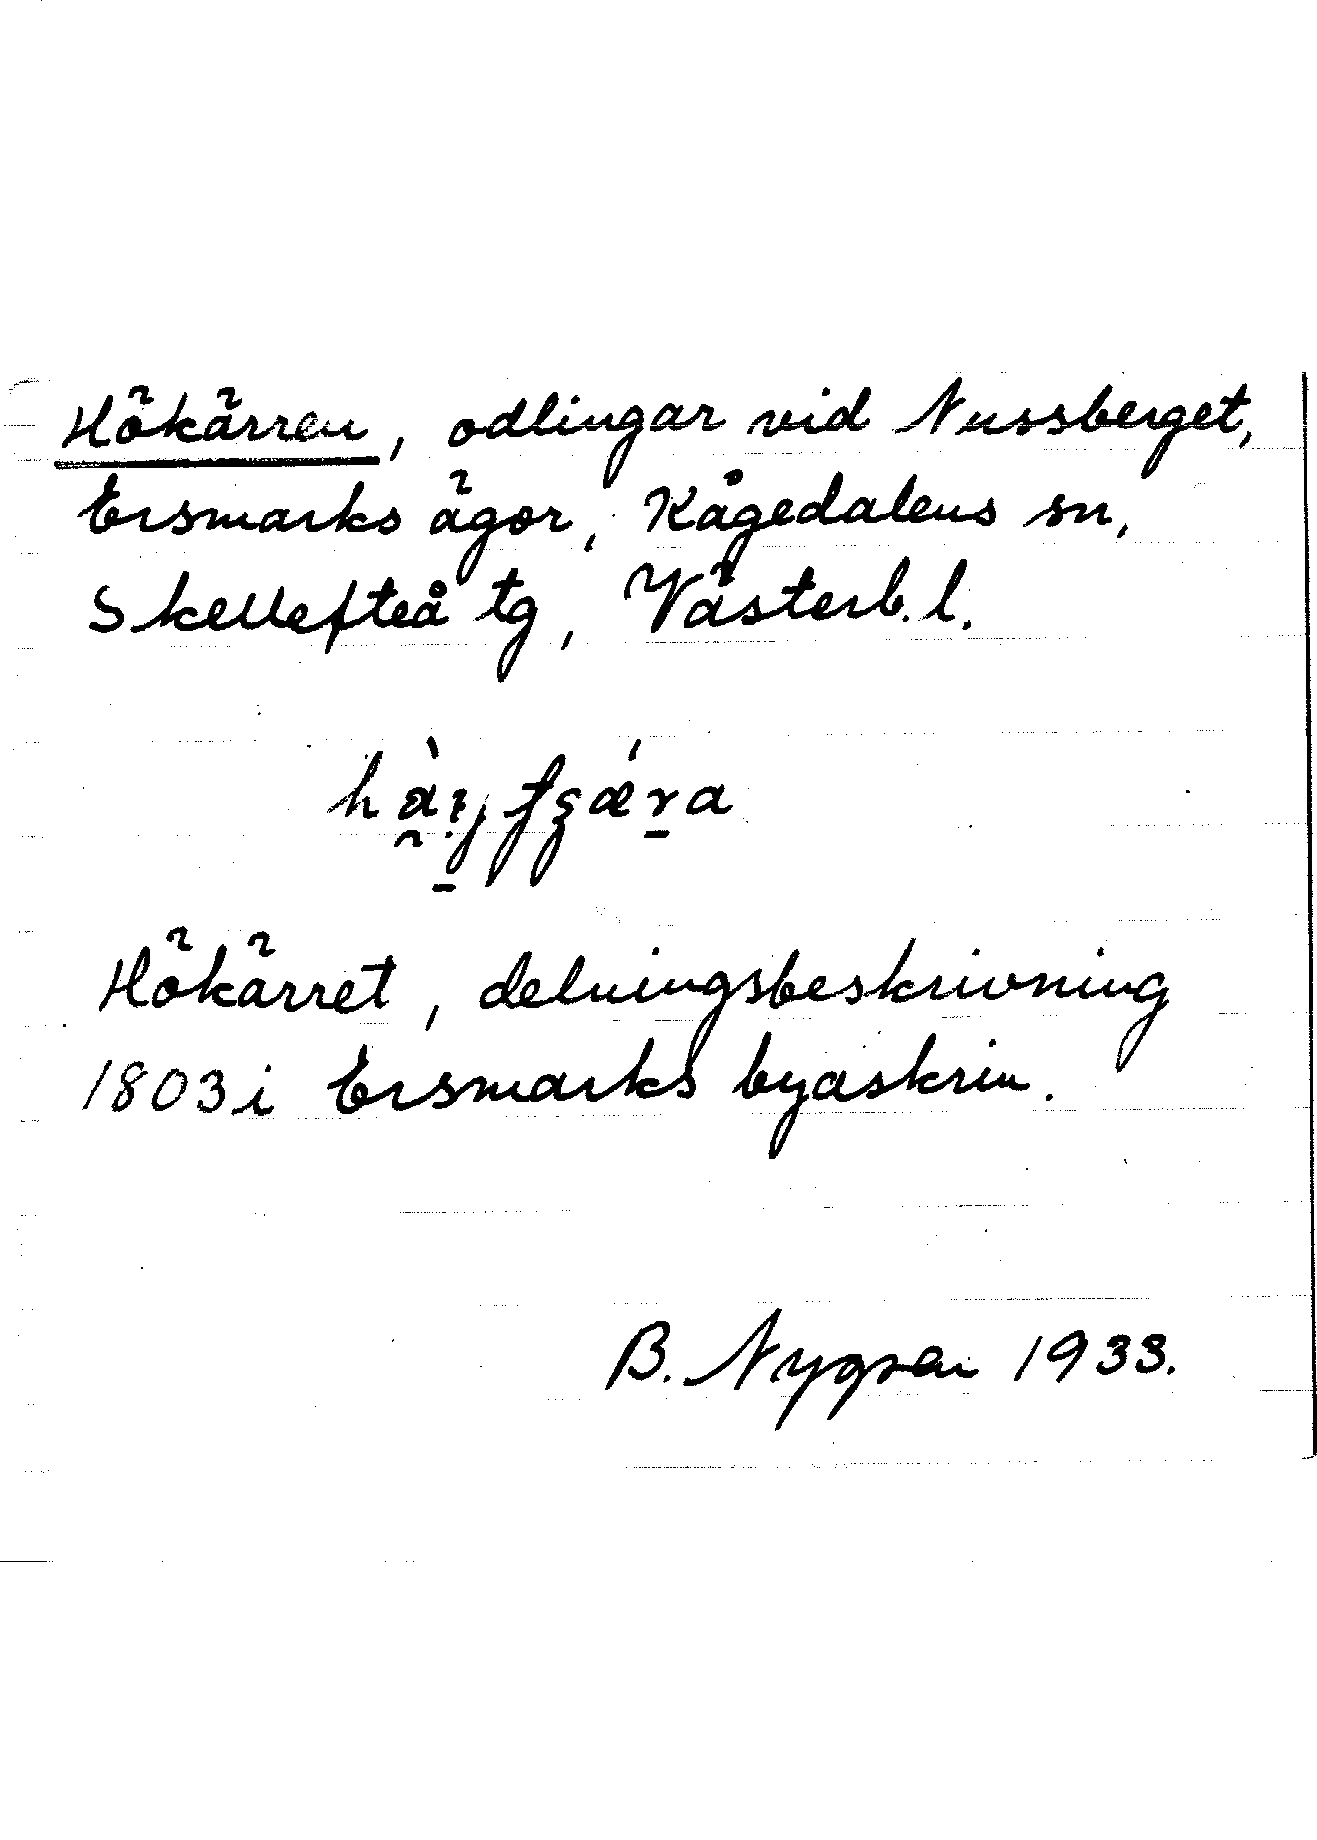 Hökärren, odlingar vid Nussberget,
Ersmarks ägor, Kågedalens sn,
Skellefteå tg, Västerb. l.
Hökärret, delningsbeskrivning
1803 i Ersmarks byaskrin.
B. Nygren 1933.